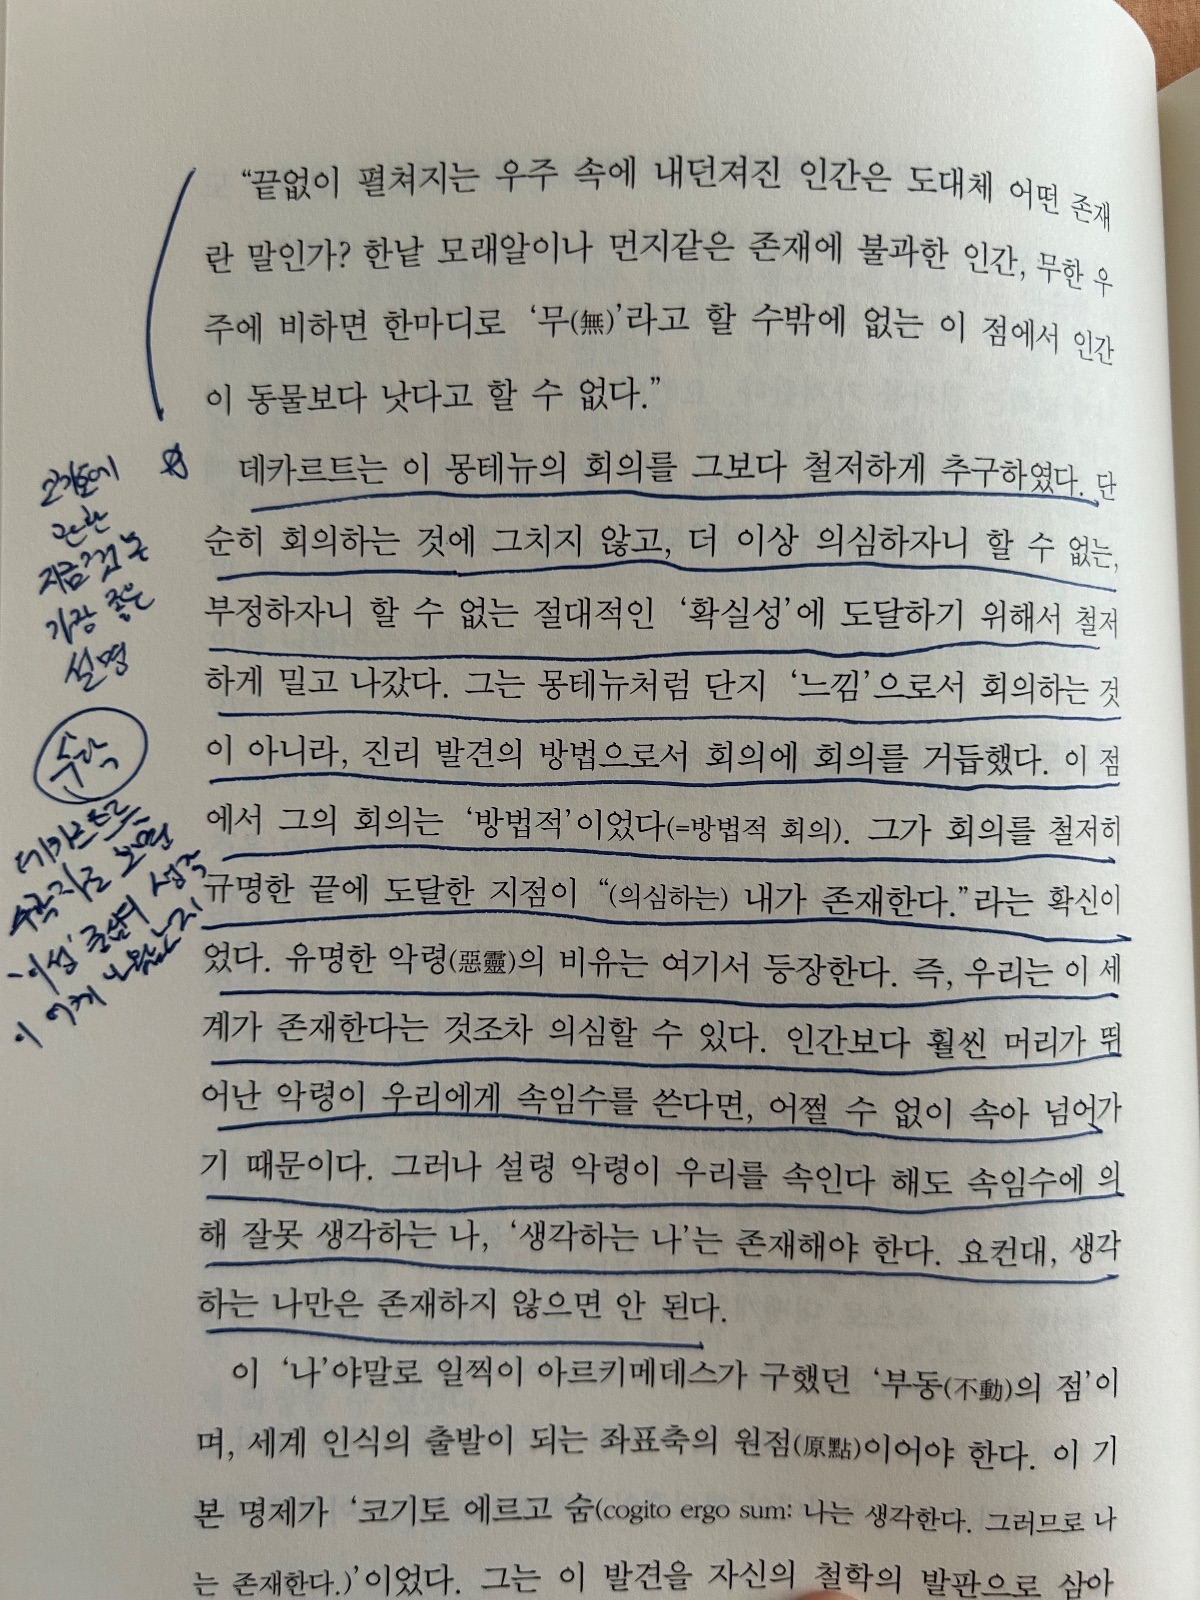 “끝없이 펼쳐지는 우주 속에 내던져진 인간은 도대체 어떤 존재
란 말인가? 한낱 모래알이나 먼지같은 존재에 불과한 인간, 무한 우
주에 비하면 한마디로 ‘무(無)’라고 할 수밖에 없는 이 점에서 인간
이 동물보다 낫다고 할 수 없다.”
데카르트는 이 몽테뉴의 회의를 그보다 철저하게 추구하였다. 단
순히 회의하는 것에 그치지 않고, 더 이상 의심하자니 할 수 없는,
부정하자니 할 수 없는 절대적인 ‘확실성’에 도달하기 위해서 철저
하게 밀고 나갔다. 그는 몽테뉴처럼 단지 ‘느낌’으로서 회의하는 것
이 아니라, 진리 발견의 방법으로서 회의에 회의를 거듭했다. 이 점
에서 그의 회의는 ‘방법적’이었다(=방법적 회의). 그가 회의를 철저히
규명한 끝에 도달한 지점이 “(의심하는) 내가 존재한다.”라는 확신이
었다. 유명한 악령(惡靈)의 비유는 여기서 등장한다. 즉, 우리는 이 세
계가 존재한다는 것조차 의심할 수 있다. 인간보다 훨씬 머리가 뛰
어난 악령이 우리에게 속임수를 쓴다면, 어쩔 수 없이 속아 넘어가
기 때문이다. 그러나 설령 악령이 우리를 속인다 해도 속임수에 의
해 잘못 생각하는 나, ‘생각하는 나’는 존재해야 한다. 요컨대, 생각
하는 나만은 존재하지 않으면 안 된다.
이 ‘나’야말로 일찍이 아르키메데스가 구했던 ‘부동(不動)의 점’이
며, 세계 인식의 출발이 되는 좌표축의 원점(原點)이어야 한다. 이 기
본 명제가 ‘코기토 에르고 숨(cogito ergo sum: 나는 생각한다. 그러므로 나
는 존재한다.)’이었다. 그는 이 발견을 자신의 철학의 발판으로 삼아
코기토에
관한
지금껏
가장 좋은
설명
수학
데카르트를
수학자로 보면
'이성' 중심의